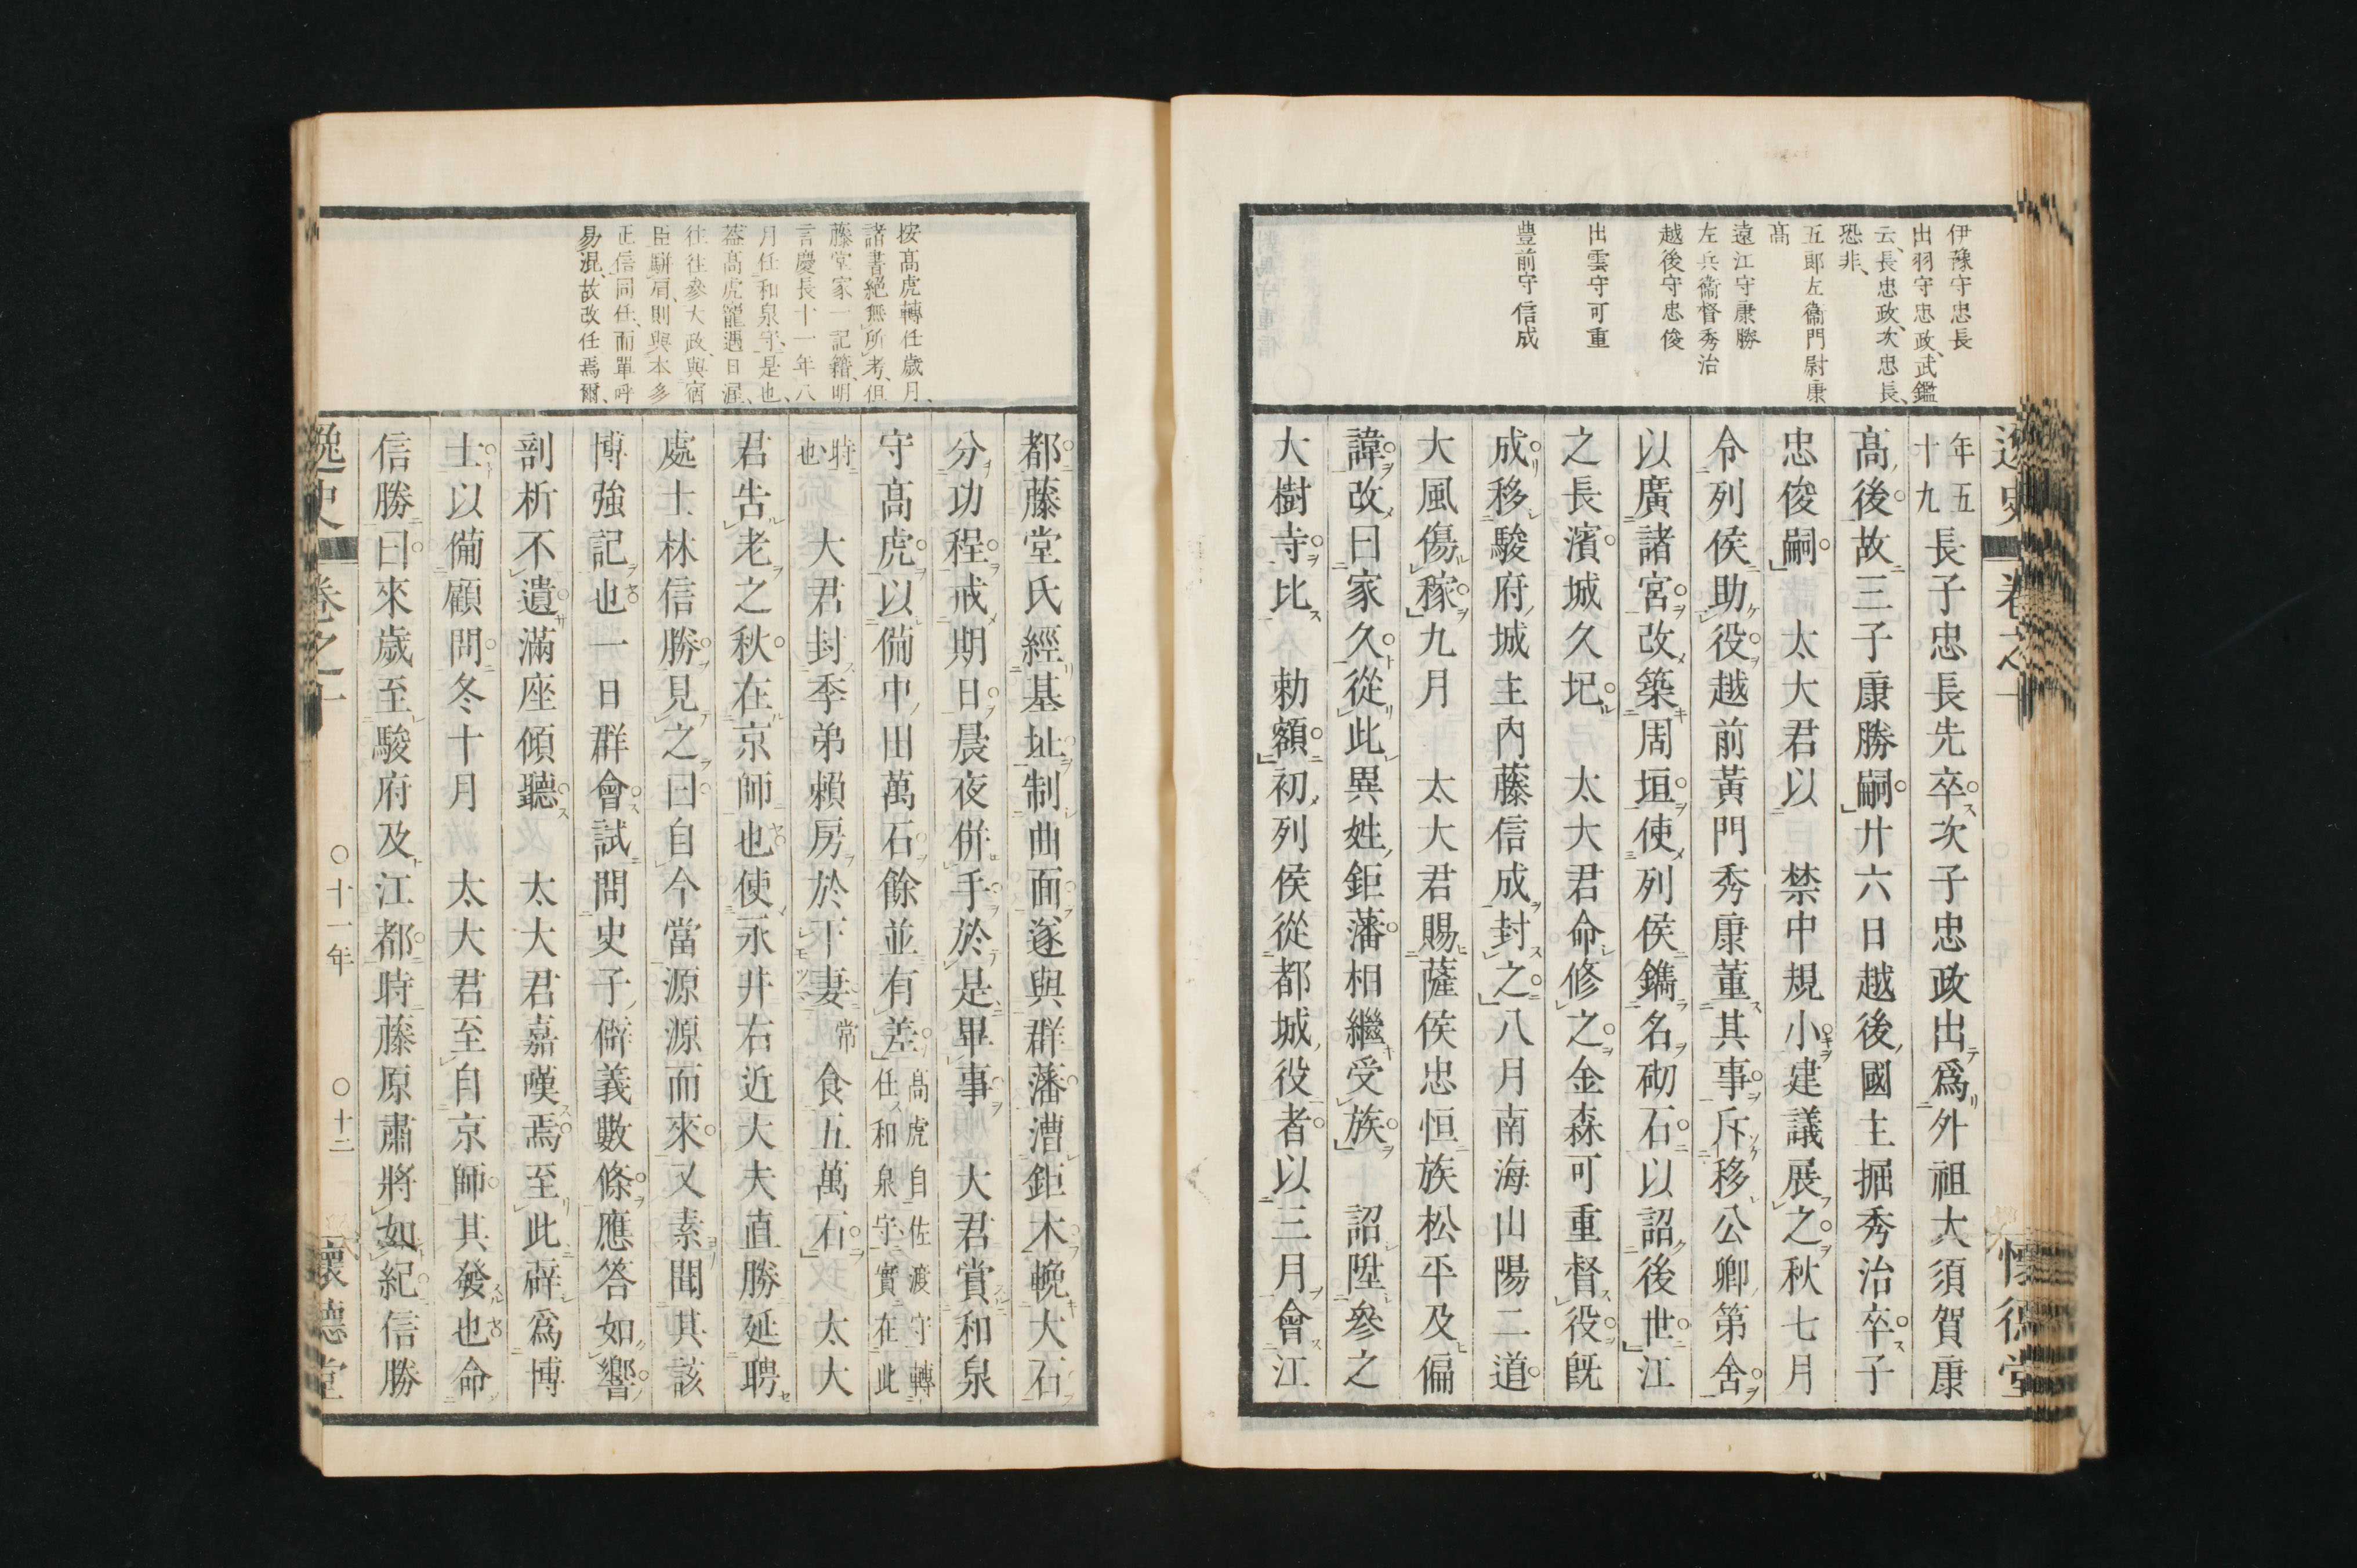 伊豫守忠長
出羽守忠政、武鑑
云、長忠政、次忠長、
恐非、
五郎左衞門尉康
高
遠江守康勝
左兵衞督秀治
越後守忠俊
出雲守可重
豊前守信成
年五
十九
長子忠長先卒次子忠政出爲外祖大須賀康
高後故三子康勝嗣廾六日越後國主掘秀治卒子
忠俊嗣 太大君以 禁中規小建議展之秋七月
令列侯助役越前黃門秀康董其事斥移公卿第舍
以廣諸宮改築周垣使列侯鐫名砌石以詔後世江
之長濱城久圮 太大君命修之金森可重督役旣
成移駿府城主內藤信成封之八月南海山陽二道
大風傷稼九月 太大君賜薩侯忠恒族松平及偏
諱改曰家久從此異姓鉅藩相繼受族 詔陞參之
大樹寺比 勅額初列侯從都城役者以三月會江
按高虎轉任歲月、
諸書絕無所考、但
藤堂家一記籍、明
言慶長十一年八
月任和泉守、是也、
葢高虎寵遇日渥、
往往參大政、與宿
臣駢肩、則與本多
正信同任、而單呼
易混、故改任焉爾、
都藤堂氏經基址制曲面遂與群藩漕鉅木輓大石
分功程戒期日晨夜併手於是畢事 大君賞和泉
守高虎以備中田萬石餘並有差
高虎自佐渡守轉
任和泉守實在此
時
也
大君封季弟賴房於下妻
常
食五萬石 太大
君告老之秋在京師也使永井右近大夫直勝延聘
處士林信勝見之曰自今當源源而來又素聞其該
博強記也一日群會試問史子僻義數條應答如響
剖析不遺滿座傾聽 太大君嘉嘆焉至此辟爲博
士以備顧問冬十月 太大君至自京師其發也命
信勝曰來歲至駿府及江都時藤原肅將如紀信勝
逸史 卷之十 ○十一年 ○十二 懷德堂